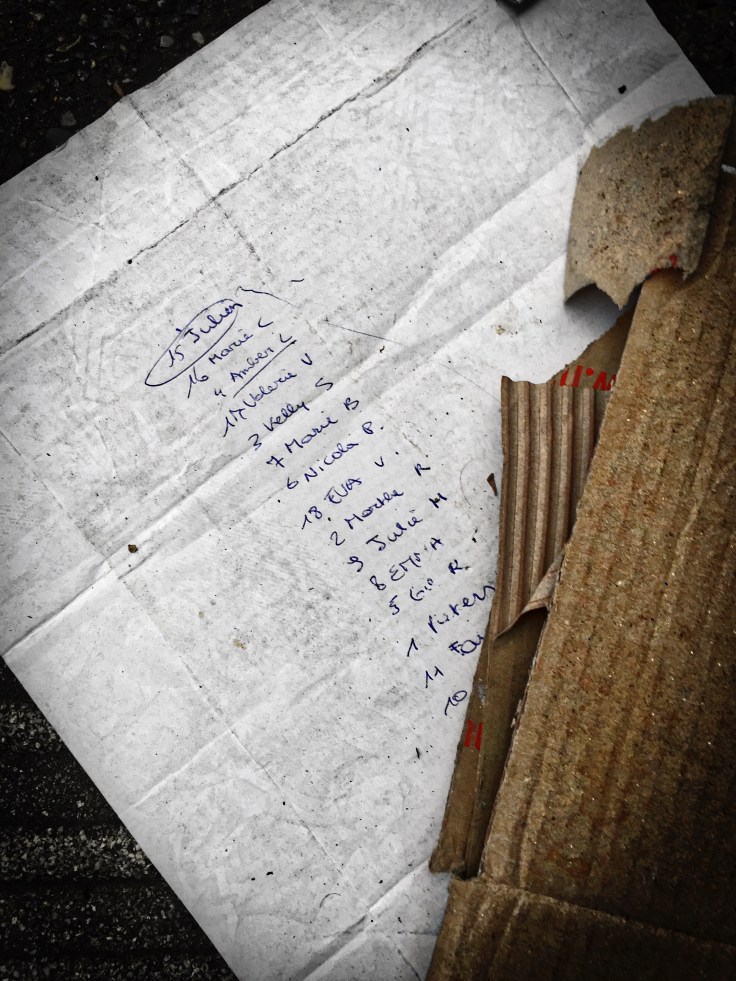 15 Julien
16 Marie C
" Amber L
17 Valerie V
3 Kelly S
7 Marie B
6 Nicola P.
18 EVA V
2 Marthe R
9 Julie M
8 EMMA
5 Gio R.
1
11
10